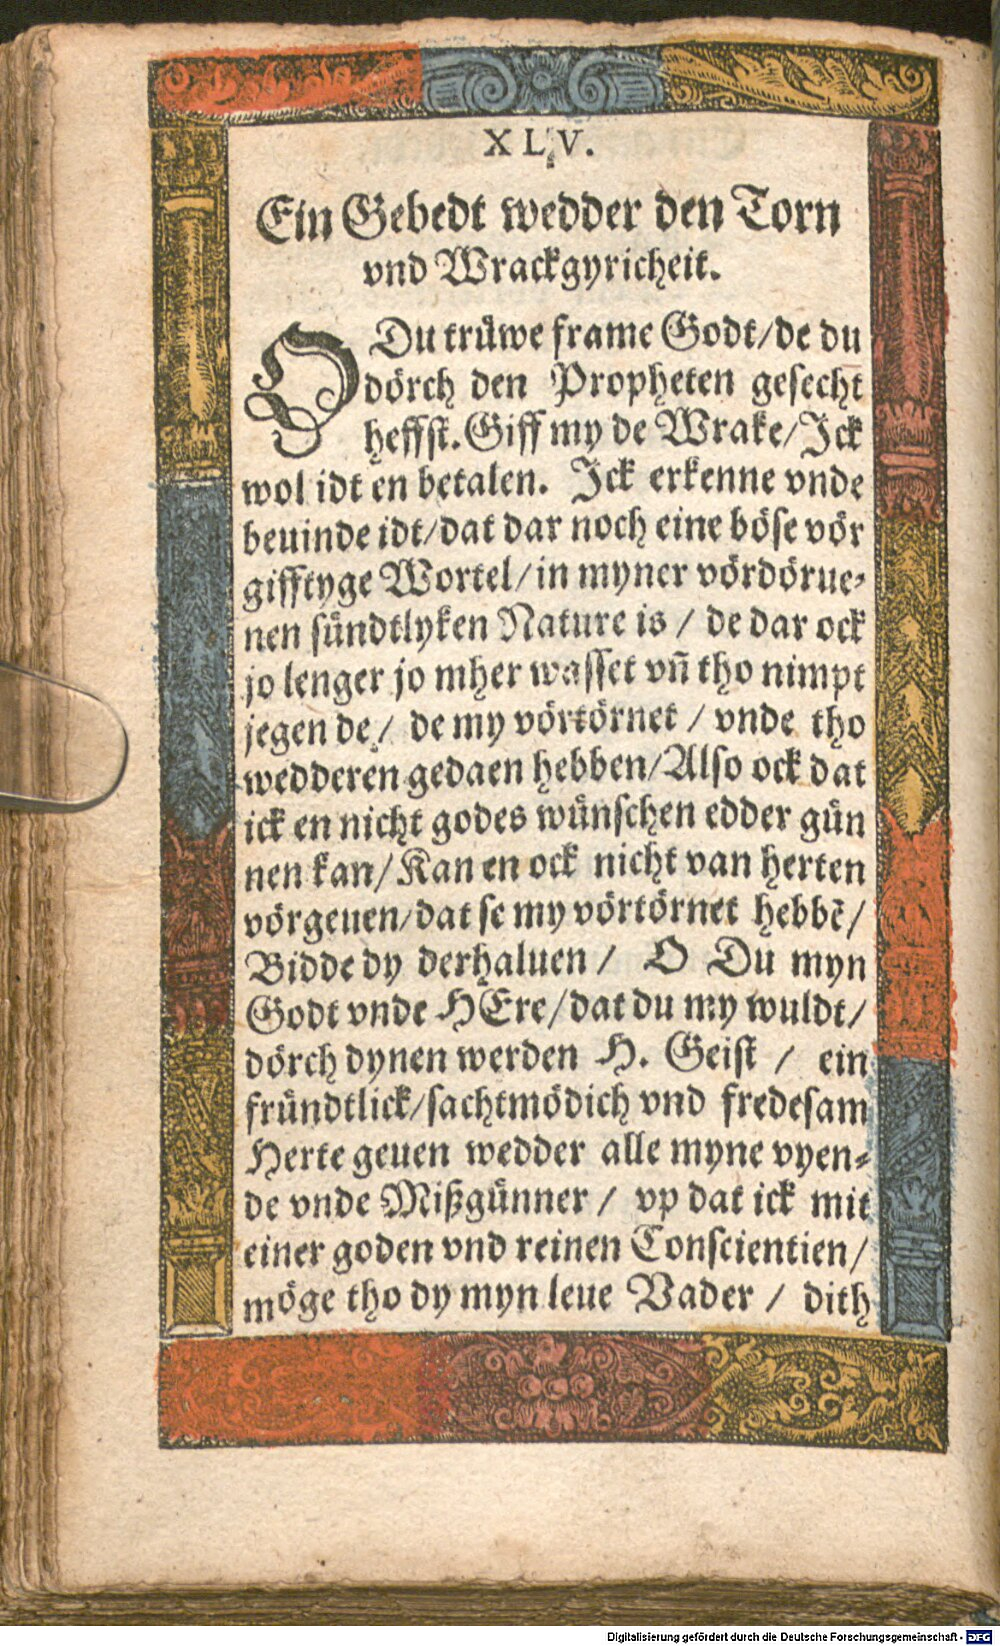 XLV.
Ein Gebedt wedder den Torn
vnd Wrackgyricheit.
O Du trüwe frame Godt/de du
dörch den Propheten gesecht
heffst. Giff my de Wrake/Jck
wol idt en betalen. Jck erkenne vnde
beuinde idt/dat dar noch eine böse vör
gifftyge Wortel/in myner vördörue-
nen sündtlyken Nature is / de dar ock
jo lenger jo mher wasset vñ tho nimpt
jegen de/ de my vörtörnet / vnde tho
wedderen gedaen hebben/Also ock dat
ick en nicht godes wünschen edder gün
nen kan/Kan en ock nicht van herten
vörgeuen/dat se my vörtörnet hebbē/
Bidde dy derhaluen / O Du myn
Godt vnde HEre/dat du my wuldt/
dörch dynen werden H. Geist / ein
fründtlick/sachtmödich vnd fredesam
Herte geuen wedder alle myne vyen-
de vnde Mißgünner / vp dat ick mit
einer goden vnd reinen Conscientien/
möge tho dy myn leue Vader / dith
Digitalisierung gefördert durch die Deutsche Forschungsgemeinschaft - DFG